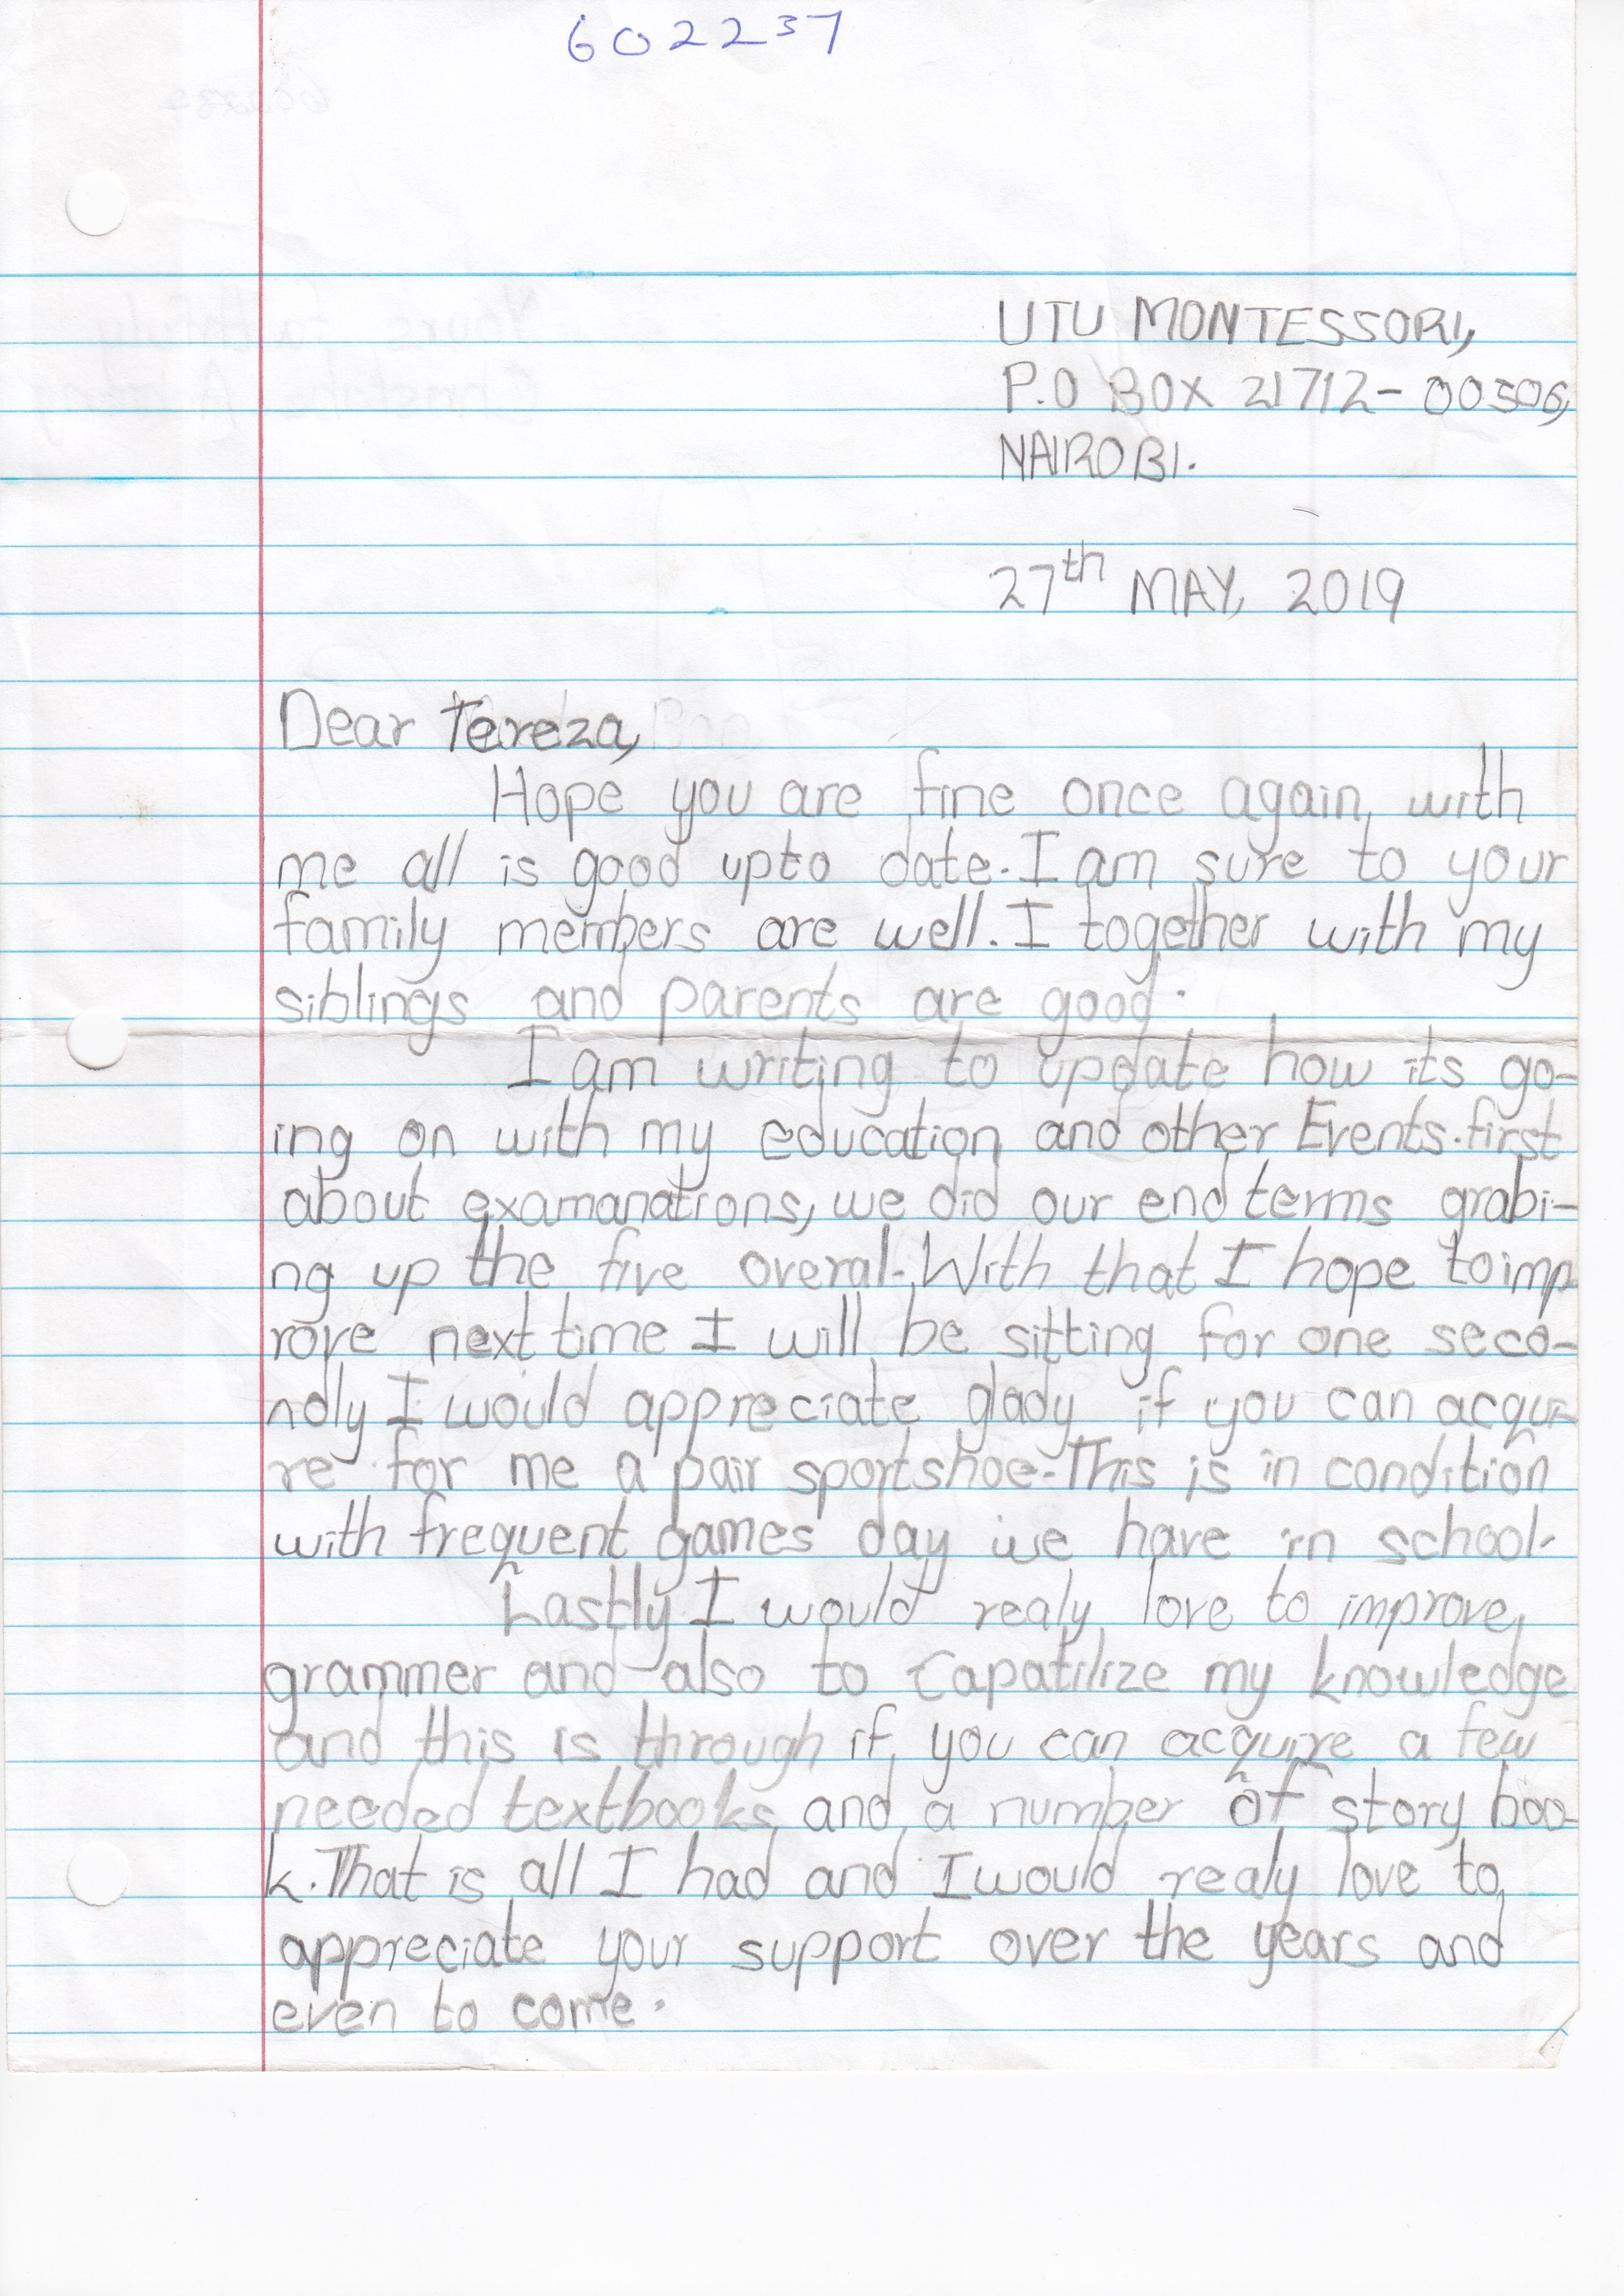 602237
UTU MONTESSORI,
P.O BOX 21712-00506,
NAIROBI.
27th MAY, 2019
Dear Tereza,
Hope you are fine once again, with
me all is good upto date. I am sure to your
family members are well. I together with my
siblings and parents are good.
I am writing to update how its go-
ing on with my education and other Events. first
about examanations, we did our end terms grabi-
ng up the five overal. With that I hope to imp
rove next time I will be sitting for one seco-
ndly I would appreciate glady if you can acqui-
re for me a pair sportshoe. This is in condition
with frequent games day we have in school.
Lastly I would realy love to improve
grammer and also to Capatilize my knowledge
and this is through if you can acquire a few
needed textbooks and a number of story boo-
k. That is all I had and I would realy love to
appreciate your support over the years and
even to come.